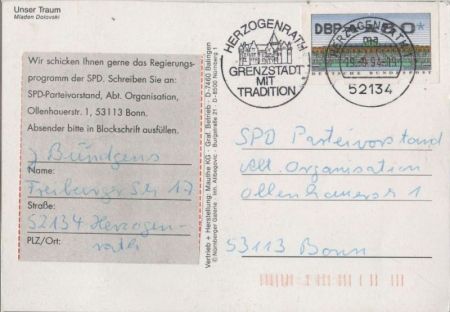 Unser Traum
Mladen Dolovski
Wir schicken Ihnen gerne das Regierungs-
programm der SPD. Schreiben Sie an:
SPD-Parteivorstand, Abt. Organisation,
Ollenhauerstr. 1, 53113 Bonn.
Absender bitte in Blockschrift ausfüllen.
J. Bündgens
Name:
Freiburger Str 17
Straße:
52134 Herzogen-
PLZ/Ort: rath
Vertrieb + Herstellung: Mauthe KG · Graf. Betrieb · D-7460 Balingen
© Nürnberger Galerie · Inh. Abbegovic · Burgstraße 21 · D-8500 Nürnberg 1
HERZOGENRATH
GRENZSTADT
MIT
TRADITION
DBP
80
DEUTSCHE BUNDESPOST
HERZOGENRATH
94
52134
SPD Parteivorstand
Abt. Organisation
Ollenhauerstr 1
53113 Bonn